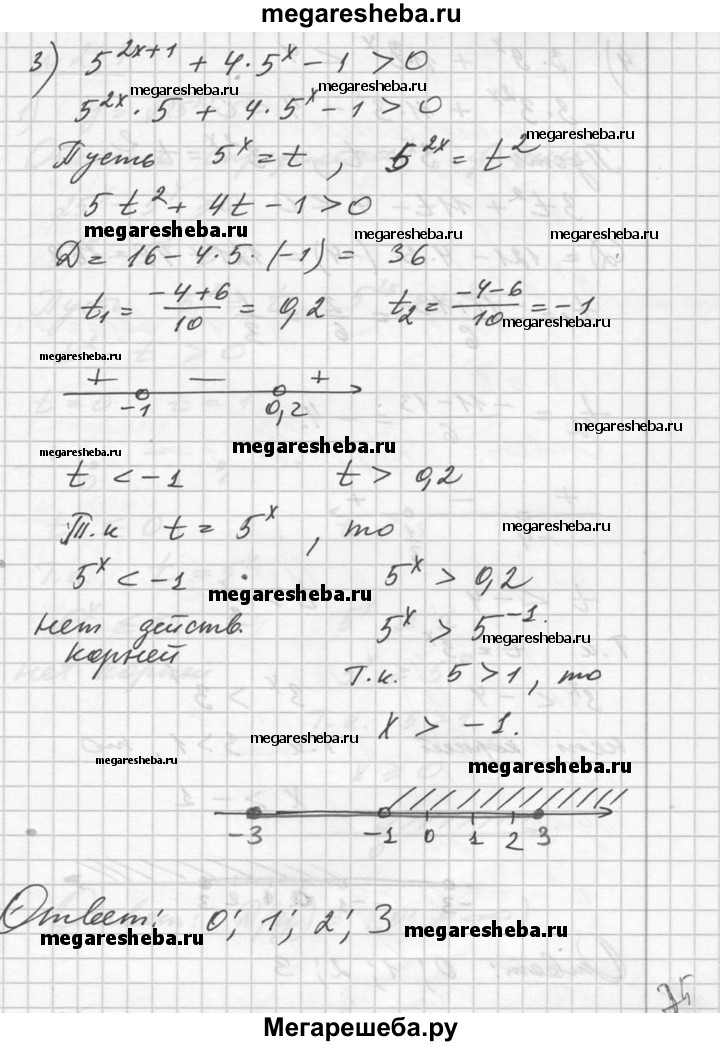 megaresheba.ru
3) 5^(2x+1) + 4·5^x − 1 > 0
megaresheba.ru megaresheba.ru
5^(2x)·5 + 4·5^x − 1 > 0
megaresheba.ru
Пусть 5^x = t, 5^(2x) = t^2
5t^2 + 4t − 1 > 0
megaresheba.ru megaresheba.ru megaresheba.ru
D = 16 − 4·5·(−1) = 36
t₁ = (−4+6)/10 = 0,2 t₂ = (−4−6)/10 = −1
megaresheba.ru
megaresheba.ru
+ — +
−1 0,2
megaresheba.ru
megaresheba.ru
megaresheba.ru
t < −1 t > 0,2
Т.к t = 5^x, то
megaresheba.ru
5^x < −1 5^x > 0,2
megaresheba.ru
нет действ. 5^x > 5^(−1).
megaresheba.ru
корней
т.к. 5 > 1, то
x > −1.
megaresheba.ru
megaresheba.ru megaresheba.ru
−3 −1 0 1 2 3
Ответ: 0; 1; 2; 3
megaresheba.ru megaresheba.ru
Мегарешеба.ру